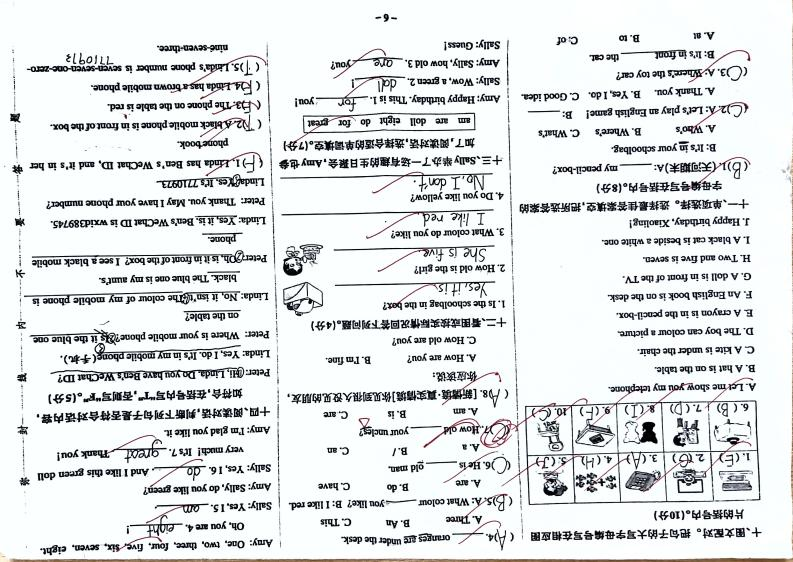 十、图文配对。把句子的大写字母编号写在相应图
片的括号内。(10分)
1. (E) 2. (G) 3. (A) 4. (H) 5. (J)
6. (B) 7. (D) 8. (I) 9. (F) 10. (C)
A. Let me show you my telephone.
B. A hat is on the table.
C. A kite is under the chair.
D. The boy can colour a picture.
E. A crayon is in the pencil-box.
F. An English book is on the desk.
G. A doll is in front of the TV.
H. Two and five is seven.
I. A black cat is beside a white one.
J. Happy birthday, Xiaoling!
十一、单项选择。选择最佳答案填空,把所选答案的
字母编号写在括号内。(8分)
(B)1. (天河期末)A: ____ my pencil-box?
B: It's in your schoolbag.
A. Who's B. Where's C. What's
(C)2. A: Let's play an English game! B: ____
A. Thank you. B. Yes, I do. C. Good idea.
(C)3. A: Where's the toy car?
B: It's in front ____ the cat.
A. at B. to C. of
(A)4. ____ oranges are under the desk.
A. Three B. An C. This
(B)5. A: What colour ____ you like? B: I like red.
A. are B. do C. have
(C)6. He is ____ old man.
A. a B. / C. an
(C)7. How old ____ your uncles?
A. am B. is C. are
(A)8. [新情境·真实情境]你见到很久没见的朋友,
你应该说:
A. How are you? B. I'm fine.
C. How old are you?
十二、看图或按实际情况回答下列问题。(4分)
1. Is the schoolbag in the box?
Yes, it is.
2. How old is the girl?
She is five.
3. What colour do you like?
I like red.
4. Do you like yellow?
No, I don't.
十三、Sally 举办了一场有趣的生日聚会,Amy 也参
加了,阅读对话,选择合适的单词填空。(7分)
am are doll eight do for great
Amy: Happy birthday. This is 1. for you!
Sally: Wow, a green 2. doll !
Amy: Sally, how old 3. are you?
Sally: Guess!
Amy: One, two, three, four, five, six, seven, eight.
Oh, you are 4. eight !
Sally: Yes, I 5. am .
Amy: Sally, do you like green?
Sally: Yes, I 6. do . And I like this green doll
very much! It's 7. great . Thank you!
Amy: I'm glad you like it.
十四、阅读对话,判断下列句子是否符合对话内容,
如符合,在括号内写“T”,否则写“F”。(5分)
Peter: Hi, Linda. Do you have Ben's WeChat ID?
Linda: Yes, I do. It's in my mobile phone(手机).
Peter: Where is your mobile phone? Is it the blue one
on the table?
Linda: No, it isn't. The colour of my mobile phone is
black. The blue one is my aunt's.
Peter: Oh, is it in front of the box? I see a black mobile
phone.
Linda: Yes, it is. Ben's WeChat ID is wxid389745.
Peter: Thank you. May I have your phone number?
Linda: Yes. It's 7710973.
(F)1. Linda has Ben's WeChat ID, and it's in her
phone book.
(T)2. A black mobile phone is in front of the box.
(F)3. The phone on the table is red.
(F)4. Linda has a brown mobile phone.
(T)5. Linda's phone number is seven-seven-one-zero-
nine-seven-three. 7710973
-6-